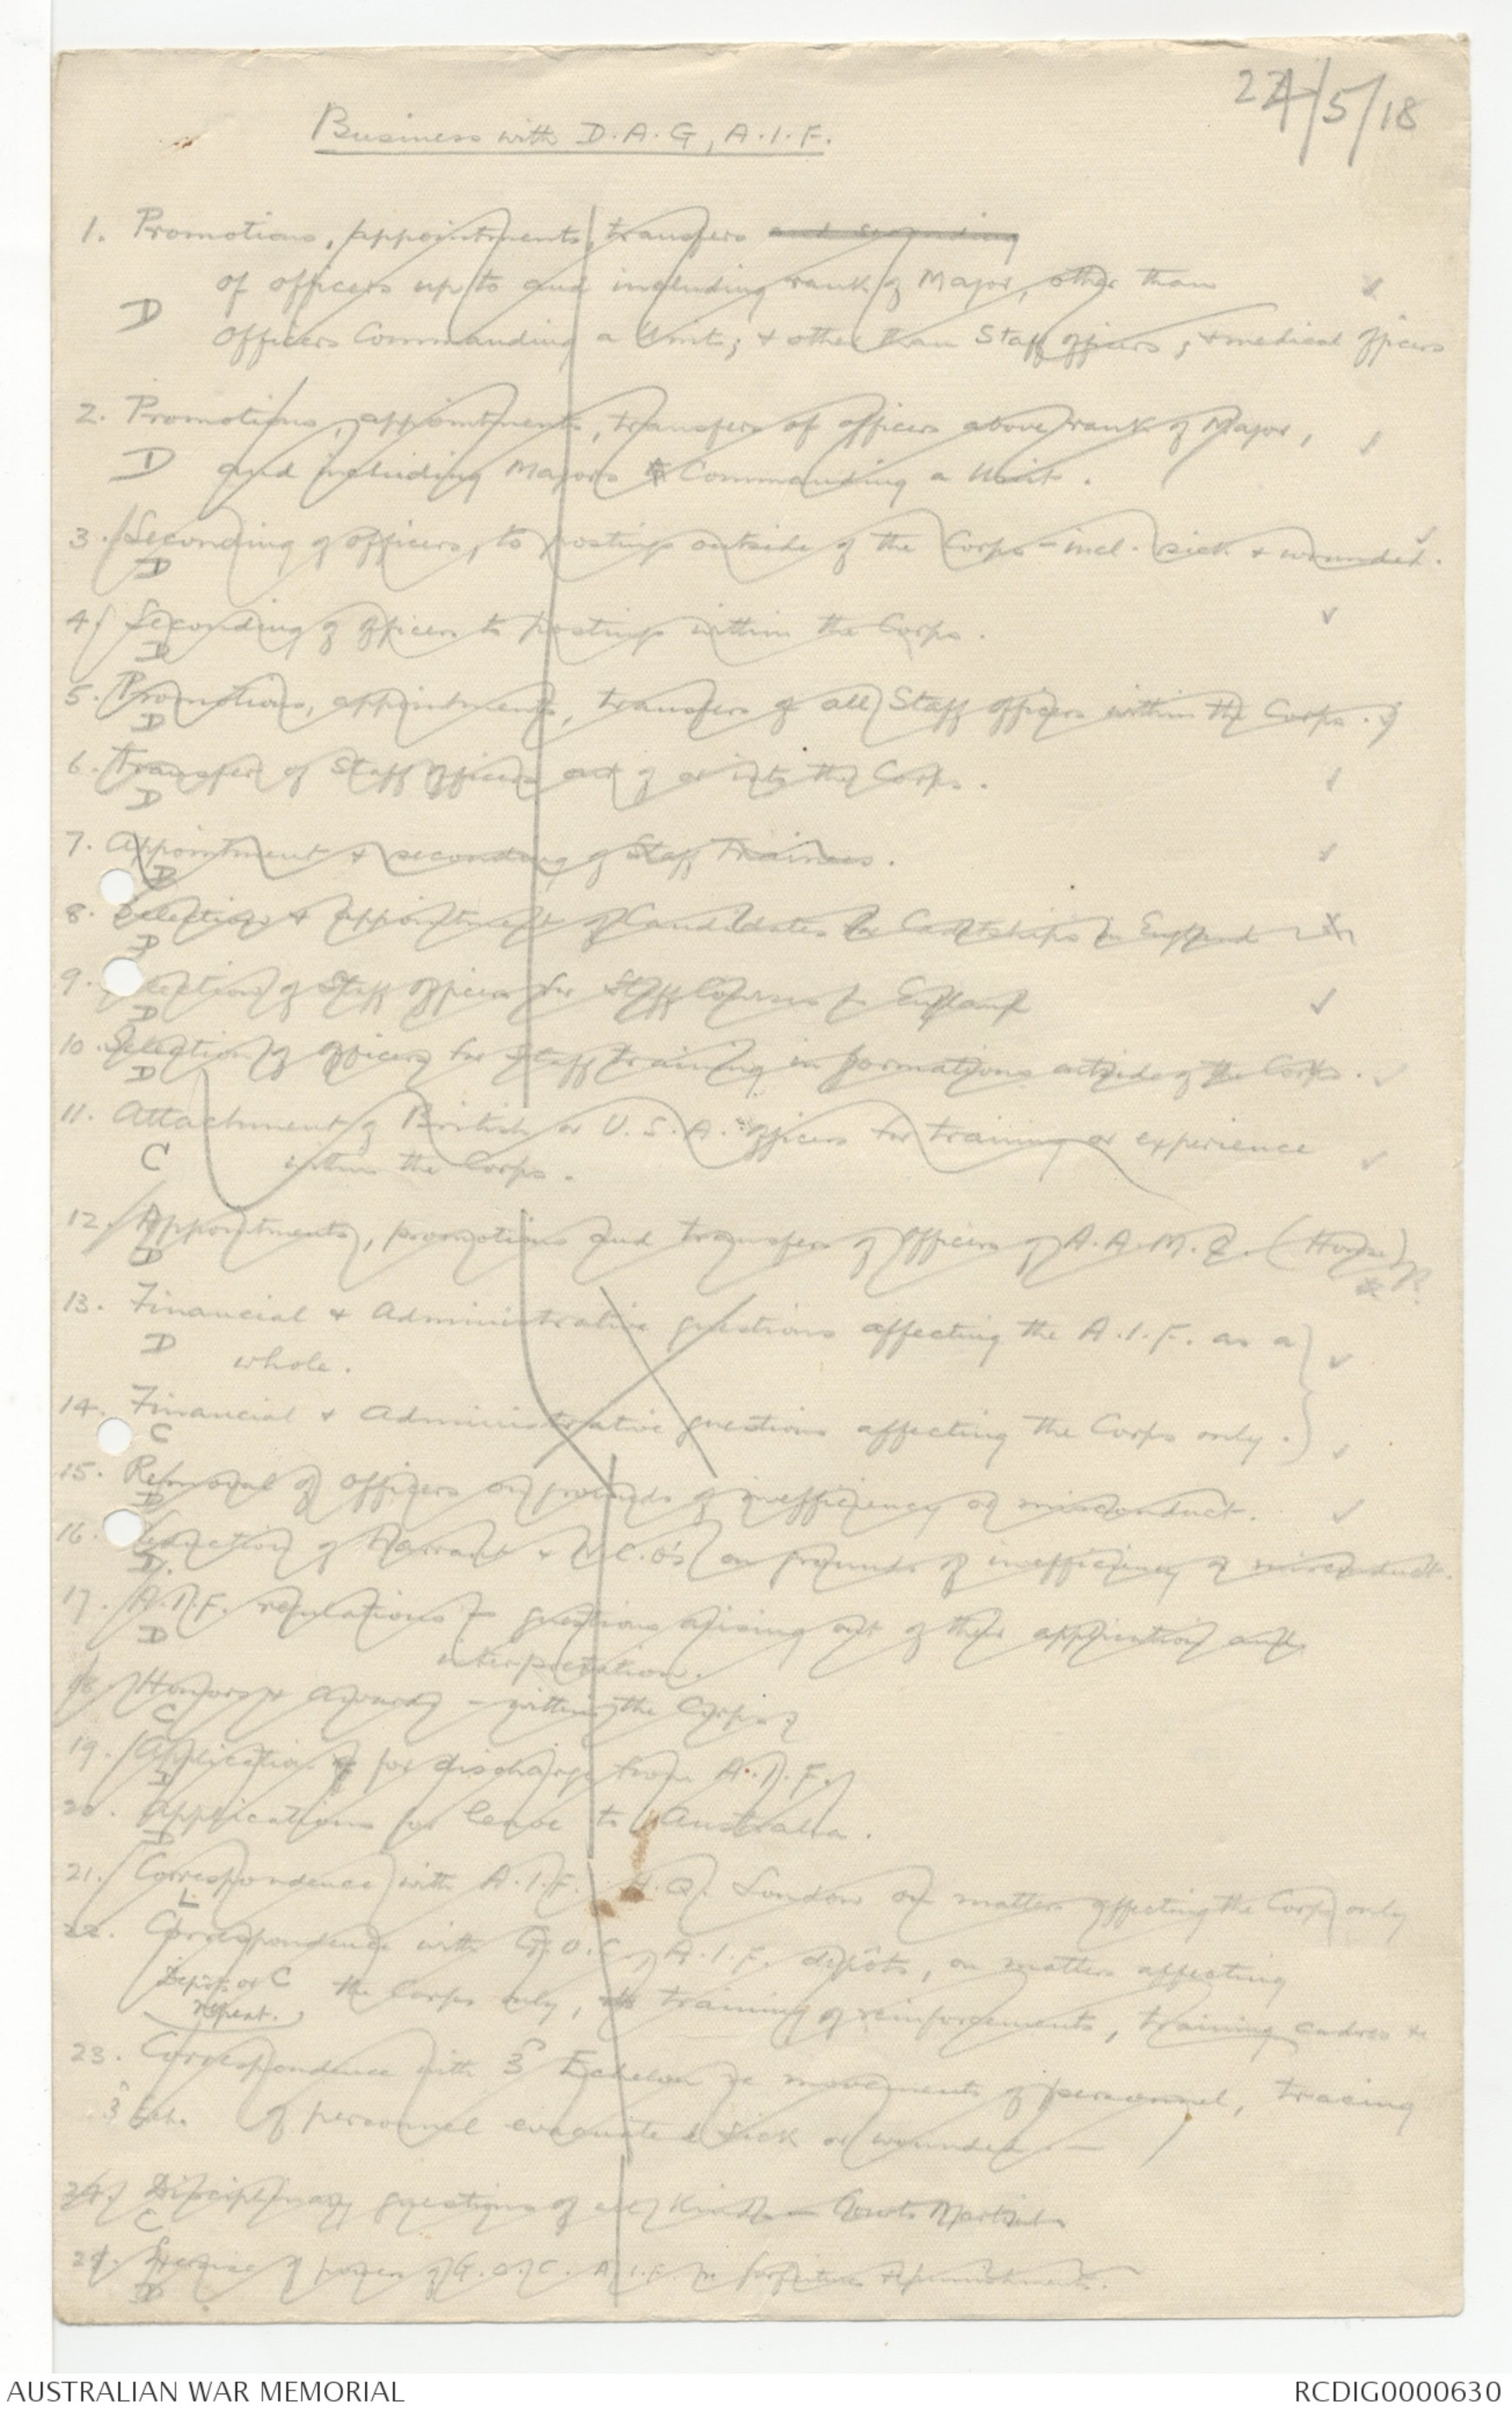 24/5/18
Business with D.A.G, A.I.F.
1. Promotions, appointments, transfers and seconding
of officers up to and including rank of Major, other than
D
Officers Commanding a Unit; & other than Staff officers, & medical officers
2. Promotions, appointments, transfers of officers above rank of Major,
D and including Majors Commanding a Unit.
3. Seconding of officers, to postings outside of the Corps - incl. sick & wounded.
D
4. Seconding of officers to postings within the Corps.
D
5. Promotions, appointments, transfers of all Staff officers within the Corps.
D
6. Transfer of Staff officers out of or into the Corps.
D
7. Appointment & seconding of Staff Trainees.
D
8. Selection & appointment of Candidates for Cadetships in England
D
9. Selection of Staff officers for Staff Courses in England
D
10. Selection of officers for staff training in formations outside of the Corps.
D
11. Attachment of British or U.S.A. officers for training or experience
C within the Corps.
12. Appointments, promotions and transfers of Officers of A.A.M.C.
D
13. Financial & Administrative questions affecting the A.I.F. as a
D whole.
14. Financial & Administrative questions affecting the Corps only.
C
15. Removal of officers on grounds of inefficiency or misconduct.
D
16. Reduction of Warrant & N.C.O's on grounds of inefficiency or misconduct.
D.
17. A.I.F. regulations & questions arising out of their application and
D
interpretation.
18. Honors & Awards - within the Corps
C
19. Application for discharge from A.I.F.
D
20. Applications for leave to Australia.
D
21. Correspondence with A.I.F. H.Q. London on matters affecting the Corps only
L
22. Correspondence with G.O.C., A.I.F. depôts, on matters affecting
Depôts or C the Corps only, training of reinforcements, training cadres &c
repeat.
23. Correspondence with 3rd Echelon re movements of personnel, tracing
3rd Ech. of personnel evacuated sick or wounded. -
24. Disciplinary questions of all kinds - Courts Martial
C
25. Exercise of powers of G.O.C. A.I.F. re forfeitures & punishments.
D
AUSTRALIAN WAR MEMORIAL
RCDIG0000630